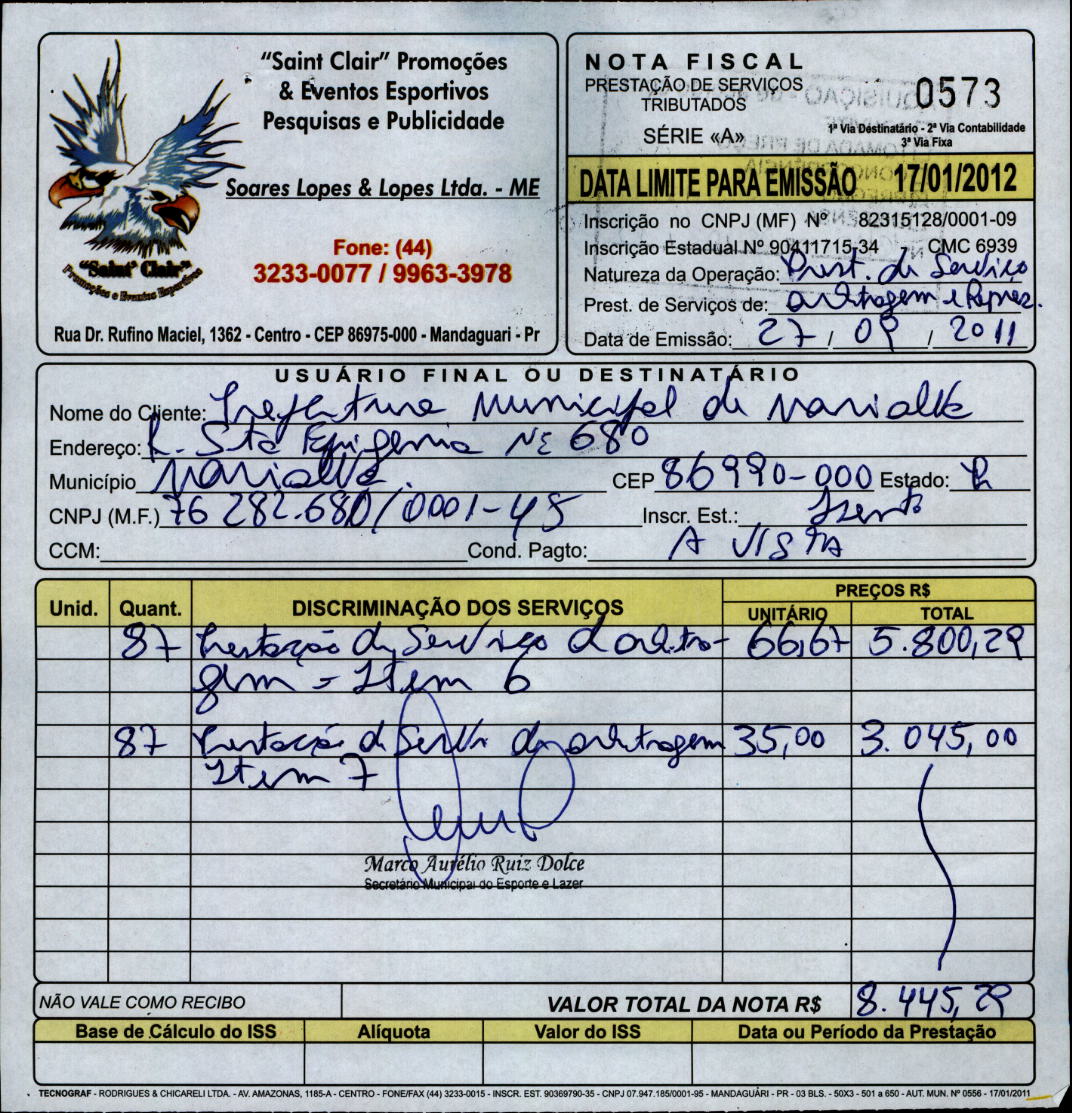 "Saint Clair" Promoções
& Eventos Esportivos
Pesquisas e Publicidade
Soares Lopes & Lopes Ltda. - ME
"Saint' Clair"
Promoções e Eventos Esportivos
Fone: (44)
3233-0077 / 9963-3978
Rua Dr. Rufino Maciel, 1362 - Centro - CEP 86975-000 - Mandaguari - Pr
NOTA FISCAL
PRESTAÇÃO DE SERVIÇOS
TRIBUTADOS
0573
SÉRIE «A»
1ª Via Destinatário - 2ª Via Contabilidade
3ª Via Fixa
DATA LIMITE PARA EMISSÃO 17/01/2012
Inscrição no CNPJ (MF) Nº 82315128/0001-09
Inscrição Estadual Nº 90411715-34 CMC 6939
Natureza da Operação: Prest. de Serviço
Prest. de Serviços de: arbitragem e
Data de Emissão: 27 / 09 / 2011
USUÁRIO FINAL OU DESTINATÁRIO
Nome do Cliente: Prefeitura Municipal de Marialva
Endereço: R. Sta Efigenia Nº 680
Município Marialva. CEP 86990-000 Estado: Pr
CNPJ (M.F.) 76 282.680/0001-45 Inscr. Est.: Isento
CCM: Cond. Pagto: A VISTA
Unid. Quant. DISCRIMINAÇÃO DOS SERVIÇOS PREÇOS R$
UNITÁRIO TOTAL
87 Prestação de Serviço d arbitra- 66,67 5.800,29
gem - Item 6
87 Prestação de Servi de arbitragem 35,00 3.045,00
Item 7
Marco Aurélio Ruiz Dolce
Secretário Municipal do Esporte e Lazer
NÃO VALE COMO RECIBO VALOR TOTAL DA NOTA R$ 8.445,29
Base de Cálculo do ISS Alíquota Valor do ISS Data ou Período da Prestação
TECNOGRAF - RODRIGUES & CHICARELI LTDA. - AV. AMAZONAS, 1185-A - CENTRO - FONE/FAX (44) 3233-0015 - INSCR. EST. 90369790-35 - CNPJ 07.947.185/0001-95 - MANDAGUARI - PR - 03 BLS. - 50X3 - 501 a 650 - AUT. MUN. Nº 0556 - 17/01/2011